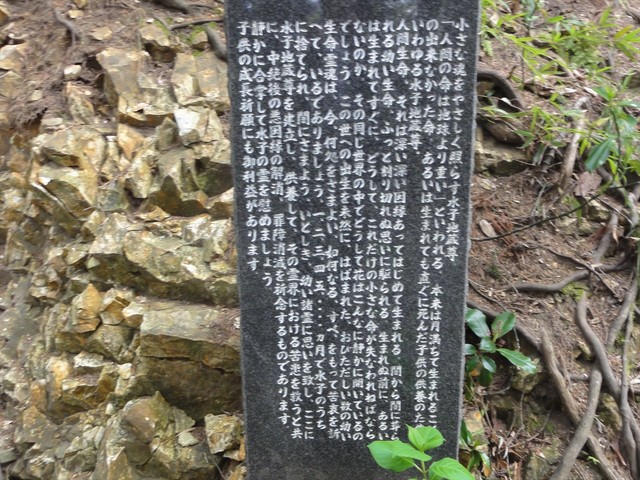 小さな魂をやさしく照らす水子地蔵尊
「人間の命は地球より重い」といわれる 本来は月満ちて生まれるこ
の出来なかった命、あるいは生まれても直ぐに死んだ子供の供養のた
いわゆる水子地蔵尊.
人間生命、それは深い深い因縁あってはじめて生まれる 闇から闇に葬ら
れる幼い生命、ふっと割り切れぬ思いに駆られる 生まれぬ前に、あるい
は生まれてすぐに、どうして、これだけの小さな命が失なわれねばなら
ないのか、その同じ世界の中でどうして花はこんなに静かに開いているの
でしょう この世への出生を未然に、はばまれた、おびただしい数の幼い
生命、霊魂は、今、何処をさまよい、如何なる、すべ、をもって苦衷を訴
へて、いるでありましょう、一、二、三、四、五、ヵ月で水子のうち
に捨てられ、闇にさまよう、いとしき、幼い諸霊に思いを致し、ここに
水子地蔵尊を建立し、供養して、その霊界における苦患を救うと共
に、中絶後の悪因縁の解消、罪障消滅を祈念するものであります
静かに合掌して水子の霊を慰めましょう
子供の成長祈願にも御利益があります